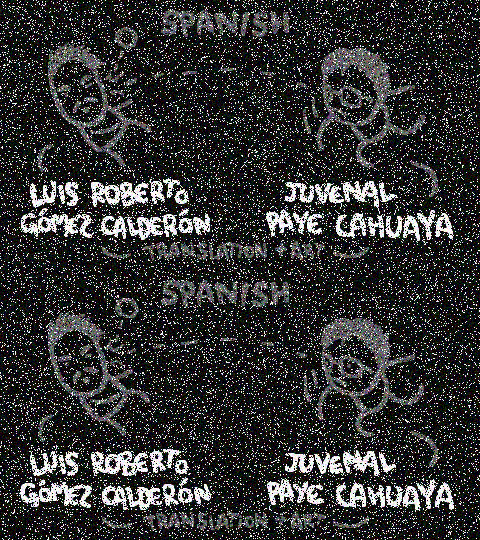 SPANISH
LUIS ROBERTO
GÓMEZ CALDERÓN
JUVENAL
PAYE CAHUAYA
TRANSLATION + ART
SPANISH
LUIS ROBERTO
GÓMEZ CALDERÓN
JUVENAL
PAYE CAHUAYA
TRANSLATION + ART